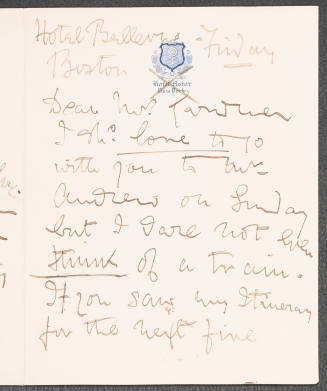 Hotel Bellevue - Friday
Boston
Dear Mrs. Gardner
I shd. love to go
with you to Mrs
Andrew on Sunday
but I dare not even
think of a train.
If you saw my Itinerary
for the next five